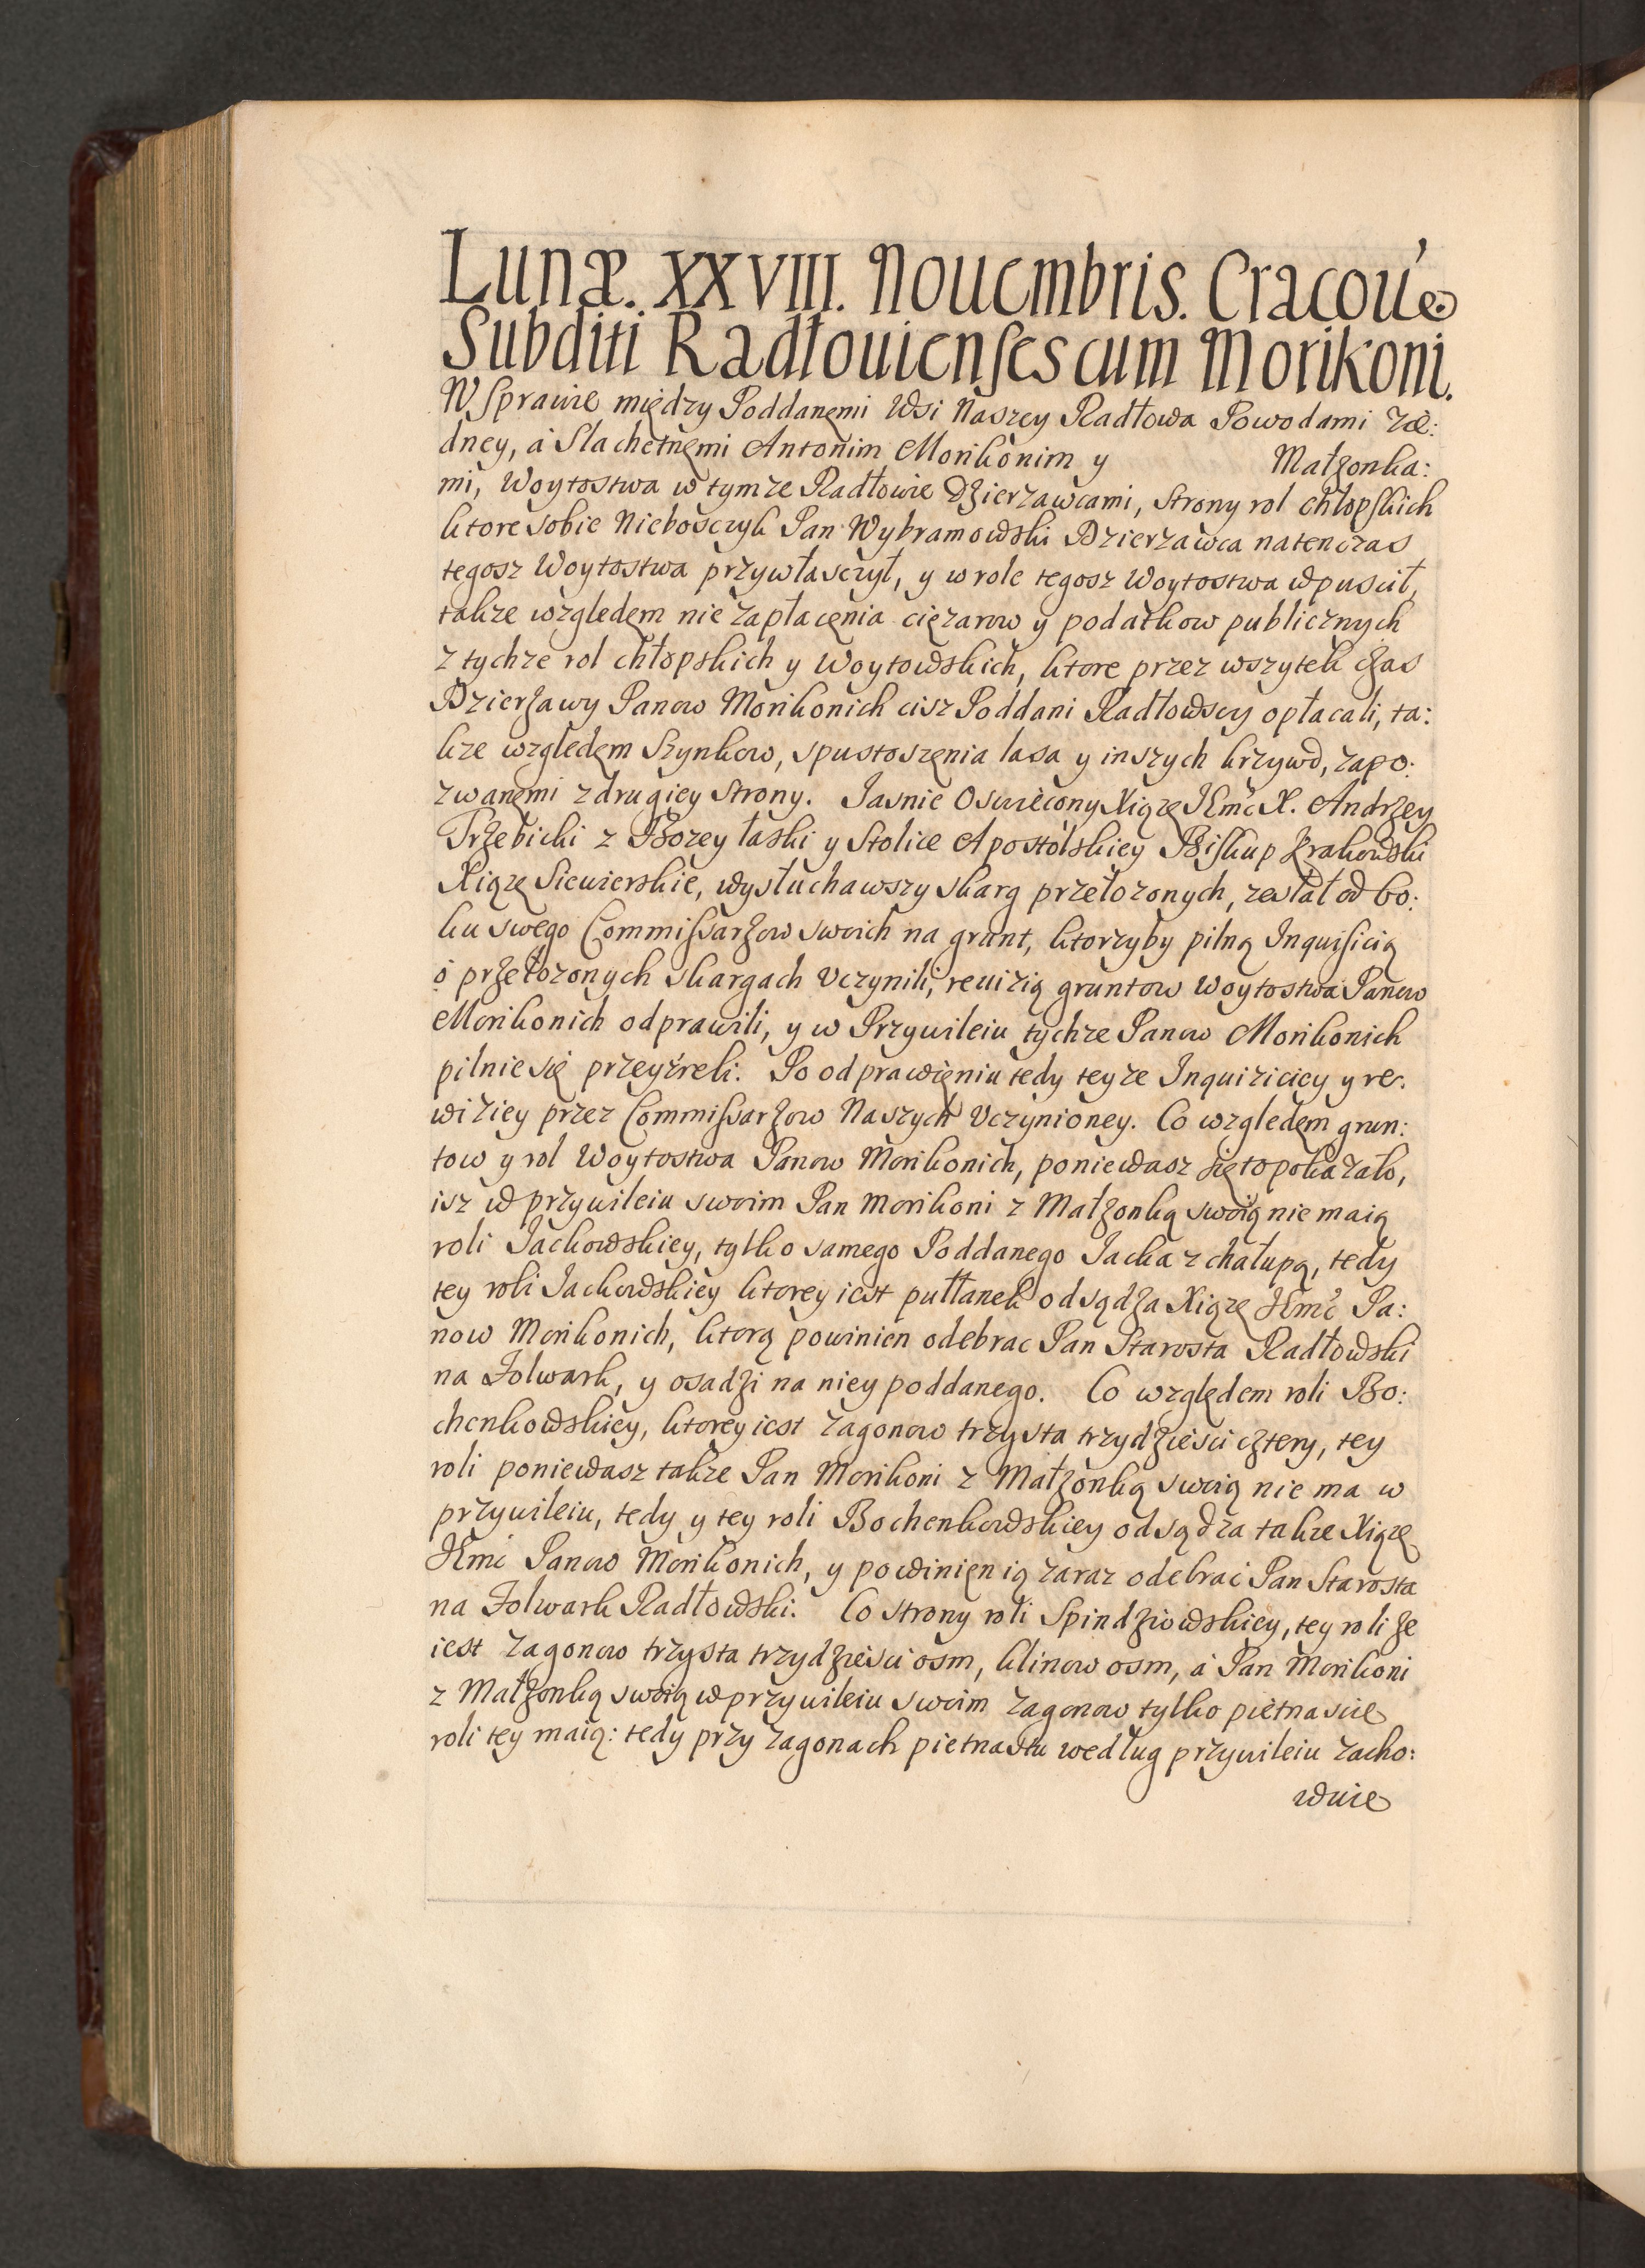 Lunæ. XXVIII. Nouembris. Cracouiæ
Subditi Radłouienses cum Morikoni.
W sprawie między Poddanęmi Wsi Naszey Radłowa Powodami z ie:
dney, á Slachetnęmi Antonim Morikonim y Małżonka:
mi, Woytostwa w tymze Radłowie Dzierzawcami, strony rol chłopskich
ktore sobie Nieboszczyk Pan Wybramowski Dzierzawca natenczas
tegosz Woytostwa przywłasczył, y w role tegosz Woytostwa wpuscił,
takze względem nie zapłacęnia cięzarow y podatkow publicznych
z tychze rol chłopskich y Woytowskich, ktore przez wszytek czas
Dzierzawy Panow Morikonich cisz Poddani Radłowscy opłacali, ta:
kze względem Szynkow, spustoszęnia lasa y inszych krzywd, zapo:
zwanęmi z drugiey strony. Jasnie Oswiecony Xiąze JEmć X. Andrzey
Trzebicki z Bozey łaski y Stolice Apostolskiey Biskup Krakowski
Xiąze Siewierskie, wysłuchawszy skarg przełozonych, zesłał od bo:
ku swego Commissarzow swoich na grunt, ktorzyby pilną Inquisicią
o przełozonych skargach vczynili, reuizią gruntow Woytostwa Panow
Morikonich odprawili, y w Przywileiu tychze Panow Morikonich
pilnie się przeyźreli. Po odprawięniu tedy teyze Inquiziciey y re:
wiziey przez Commissarzow Naszych vczynioney. Co względem grun:
tow y rol Woytostwa Panow Morikonich, poniewasz się to pokazało,
isz w przywileiu swoim Pan Morikoni z Małżonką swoią nie maią
roli Jackowskiey, tylko samego Poddanego Jacka z chałupą, tedy
tey roli Jackowskiey ktorey iest pułłanek odsądza Xiąze JEmć Pa:
now Morikonich, ktorą powinien odebrac Pan Starosta Radłowski
na Folwark, y osadzi na niey poddanego. Co względem roli Bo:
chenkowskiey, ktorey iest zagonow trzysta trzydziesci cztery, tey
roli poniewasz takze Pan Morikoni z Małzonką swoią nie ma w
przywileiu, tedy y tey roli Bochenkowskiey odsądza takze Xiąze
JEmć Panow Morikonich, y powinięn ią zaraz odebrać Pan Starosta
na Folwark Radłowski. Co strony roli Spindziowskiey, tey roli że
iest zagonow trzysta trzydziesci osm, klinow osm, á Pan Morikoni
z Małżonką swoią w przywileiu swoim zagonow tylko piętnascie
roli tey maią: tedy przy zagonach pietnastu według przywileiu zacho:
wuie